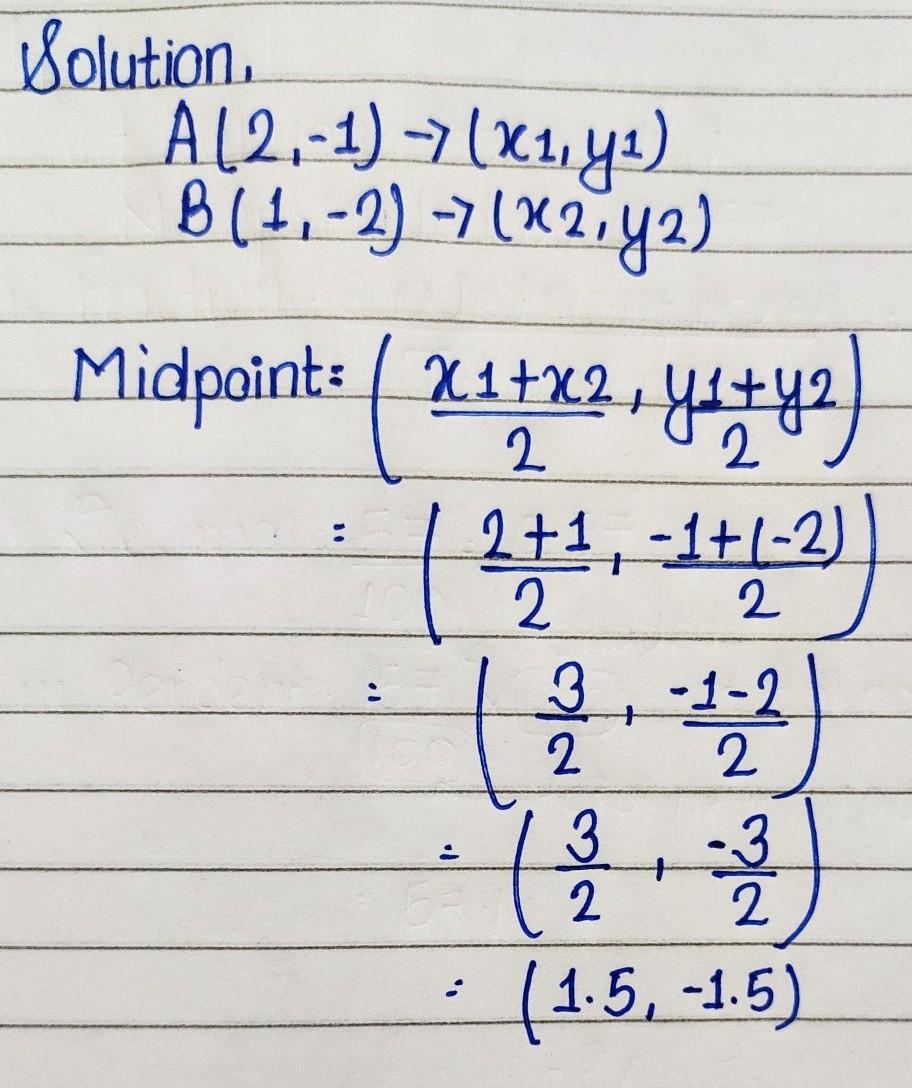 Solution.
A(2,-1) → (x1, y1)
B(1,-2) → (x2, y2)
Midpoint = ( x1+x2/2 , y1+y2/2 )
= ( 2+1/2 , -1+(-2)/2 )
= ( 3/2 , -1-2/2 )
= ( 3/2 , -3/2 )
= (1.5, -1.5)